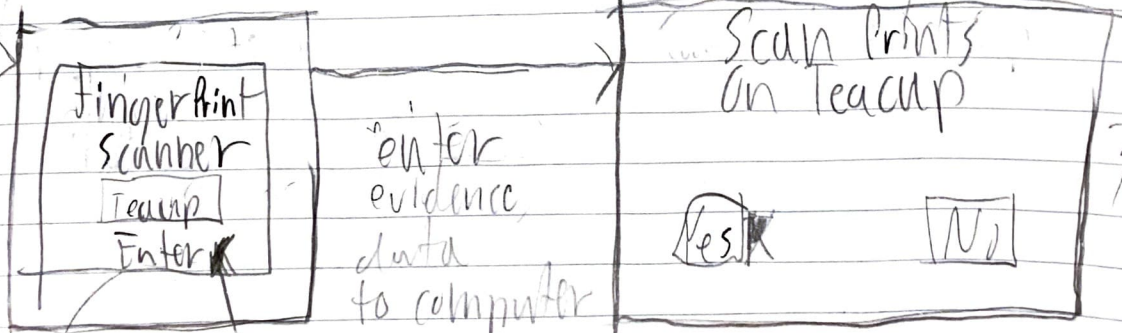 Fingerprint
Scanner
Teacup
Enter
enter
evidence
data
to computer
Scan Prints
On Teacup
Yes
No